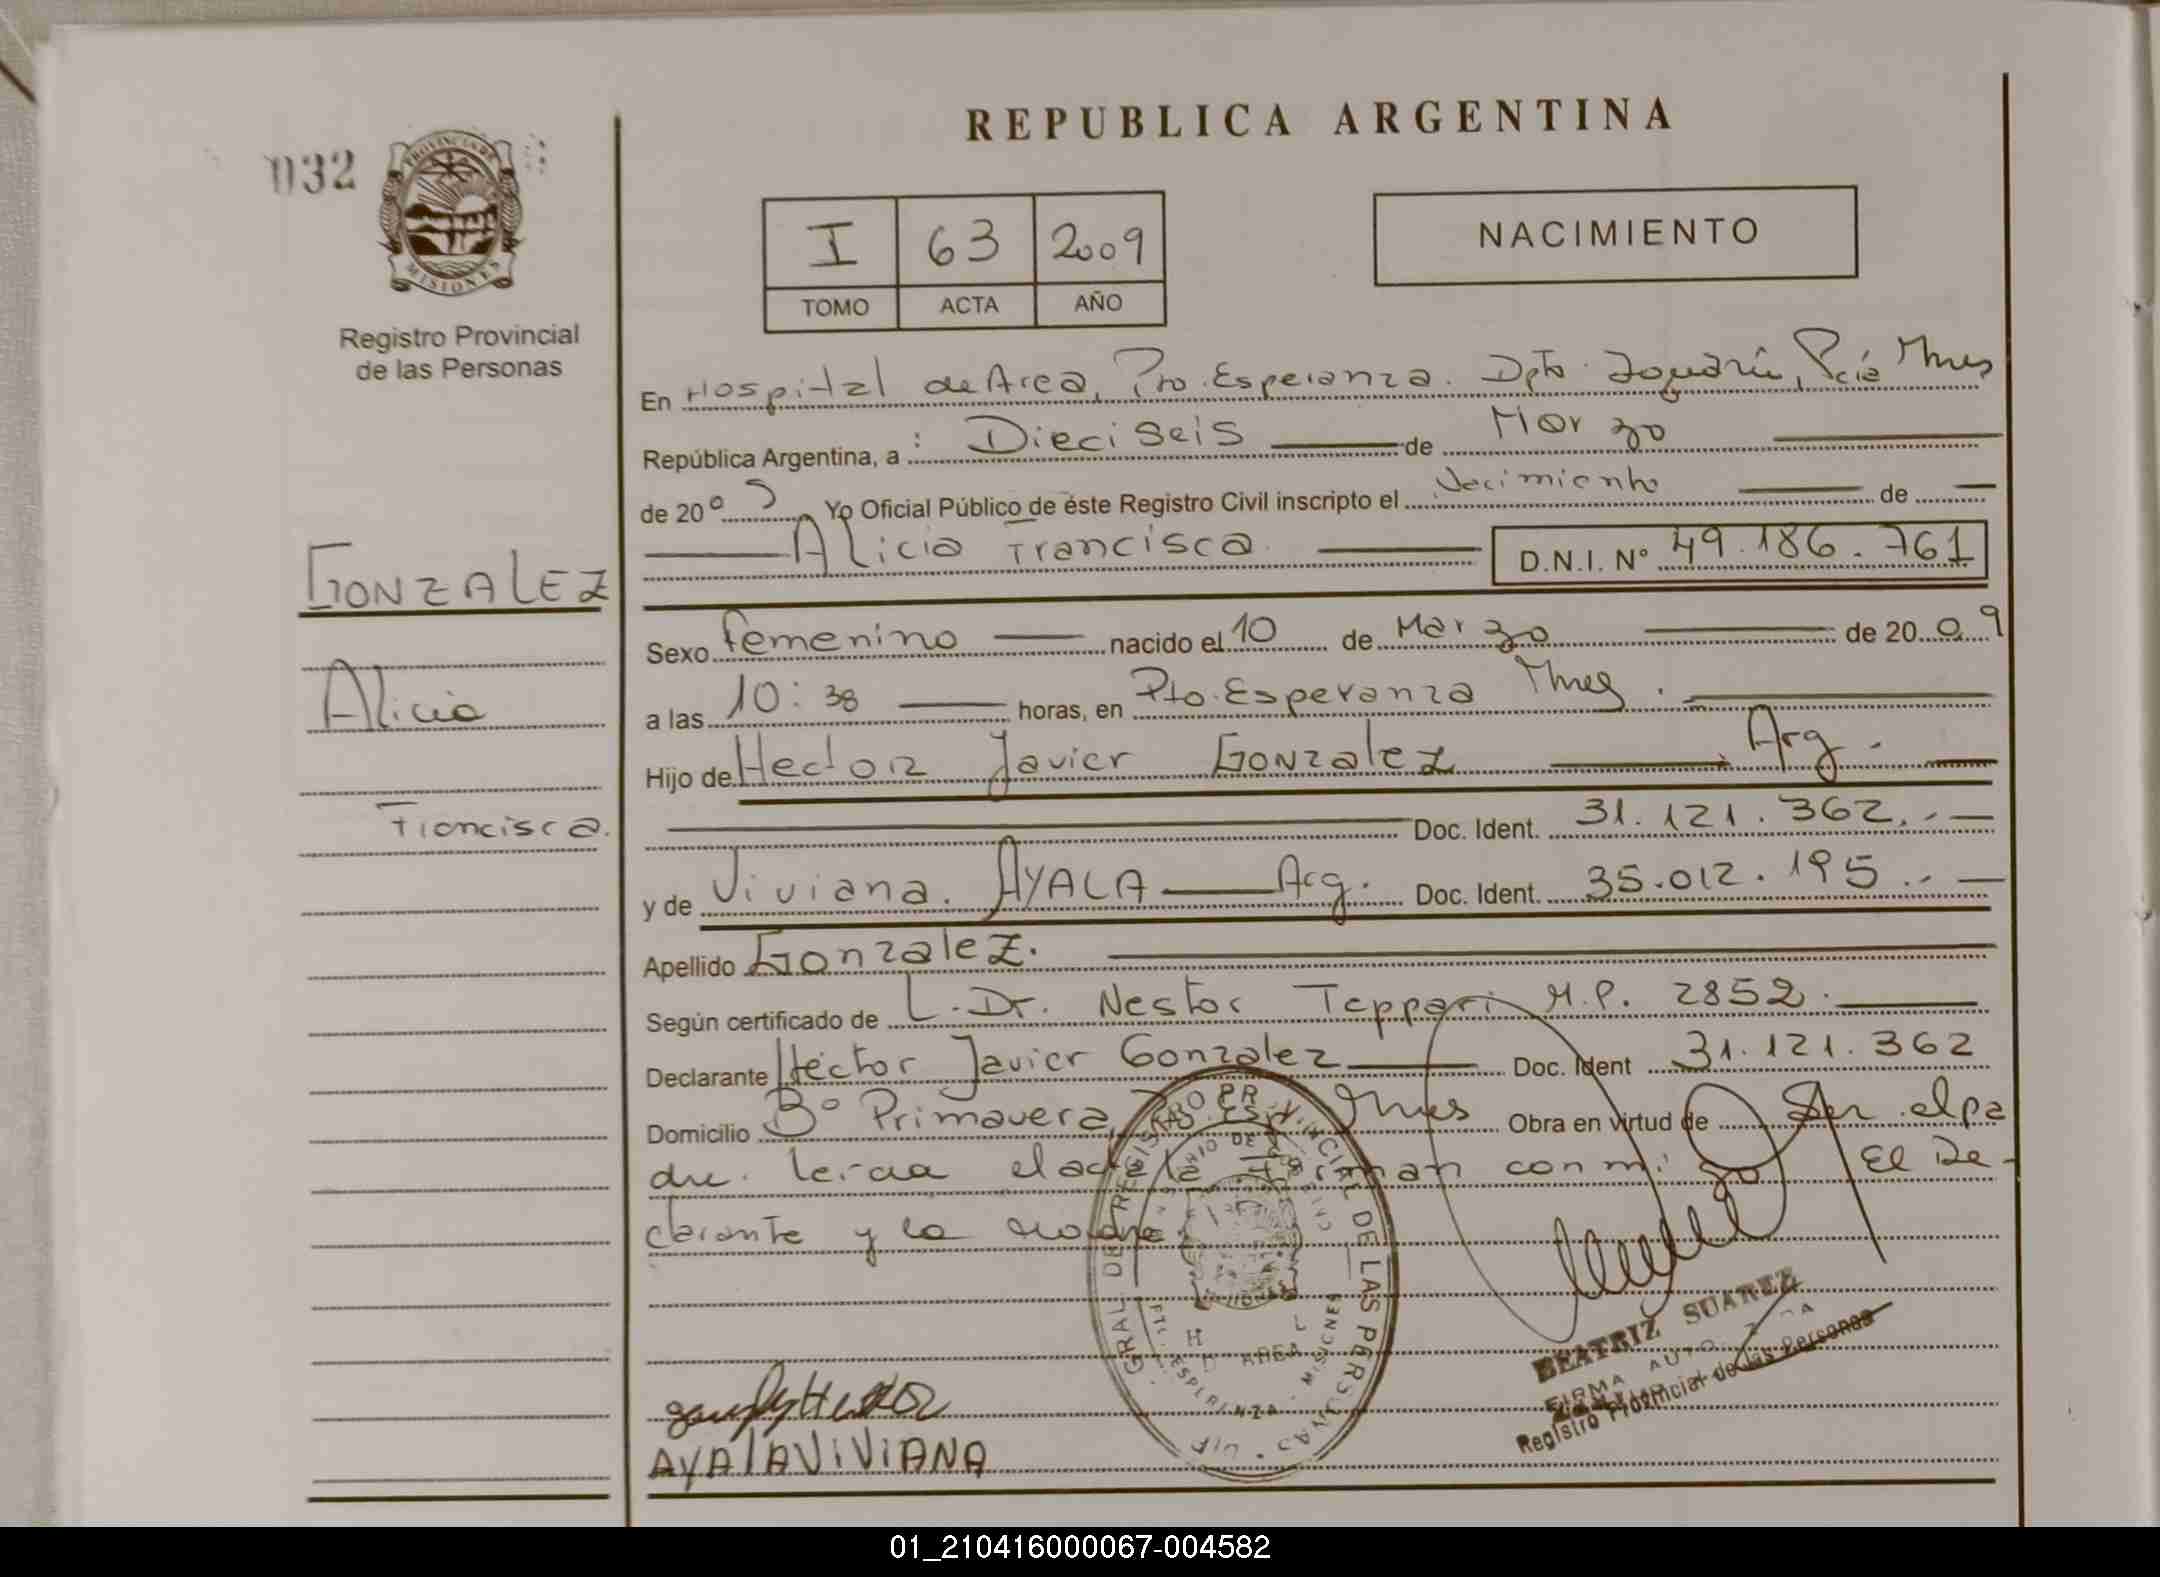 REPUBLICA ARGENTINA
032
PROVINCIA DE MISIONES
Registro Provincial
de las Personas
I 63 2009
TOMO ACTA AÑO
NACIMIENTO
En Hospital de Area, Pto. Esperanza. Dpto. Iguazú, Pcia Mnes
República Argentina, a : Dieciseis de Marzo
de 2009 Yo Oficial Público de éste Registro Civil inscripto el Nacimiento de
Alicia Francisca. D.N.I. Nº 49.186.761
GONZALEZ
Alicia
Francisca.
Sexo Femenino nacido el 10 de Marzo de 2009
a las 10:38 horas, en Pto. Esperanza Mnes.
Hijo de Hector Javier Gonzalez Arg.
Doc. Ident. 31.121.362.-
y de Viviana. AYALA Arg. Doc. Ident. 35.012.195.-
Apellido Gonzalez.
Según certificado de L. Dr. Nestor Teppari M.P. 2852.
Declarante Héctor Javier Gonzalez Doc. Ident 31.121.362
Domicilio Bº Primavera, Pto. Esp. Mnes Obra en virtud de Ser el pa
dre. Leida el acta la firman conmigo El De-
clarante y la madre.
GRAL. DE REGISTRO PROVINCIAL DE LAS PERSONAS
AREA
PTO. ESPERANZA - MISIONES
Hector
AYALA ViViANA
BEATRIZ SUAREZ
FIRMA AUTORIZADA
Registro Provincial de las Personas
01_210416000067-004582